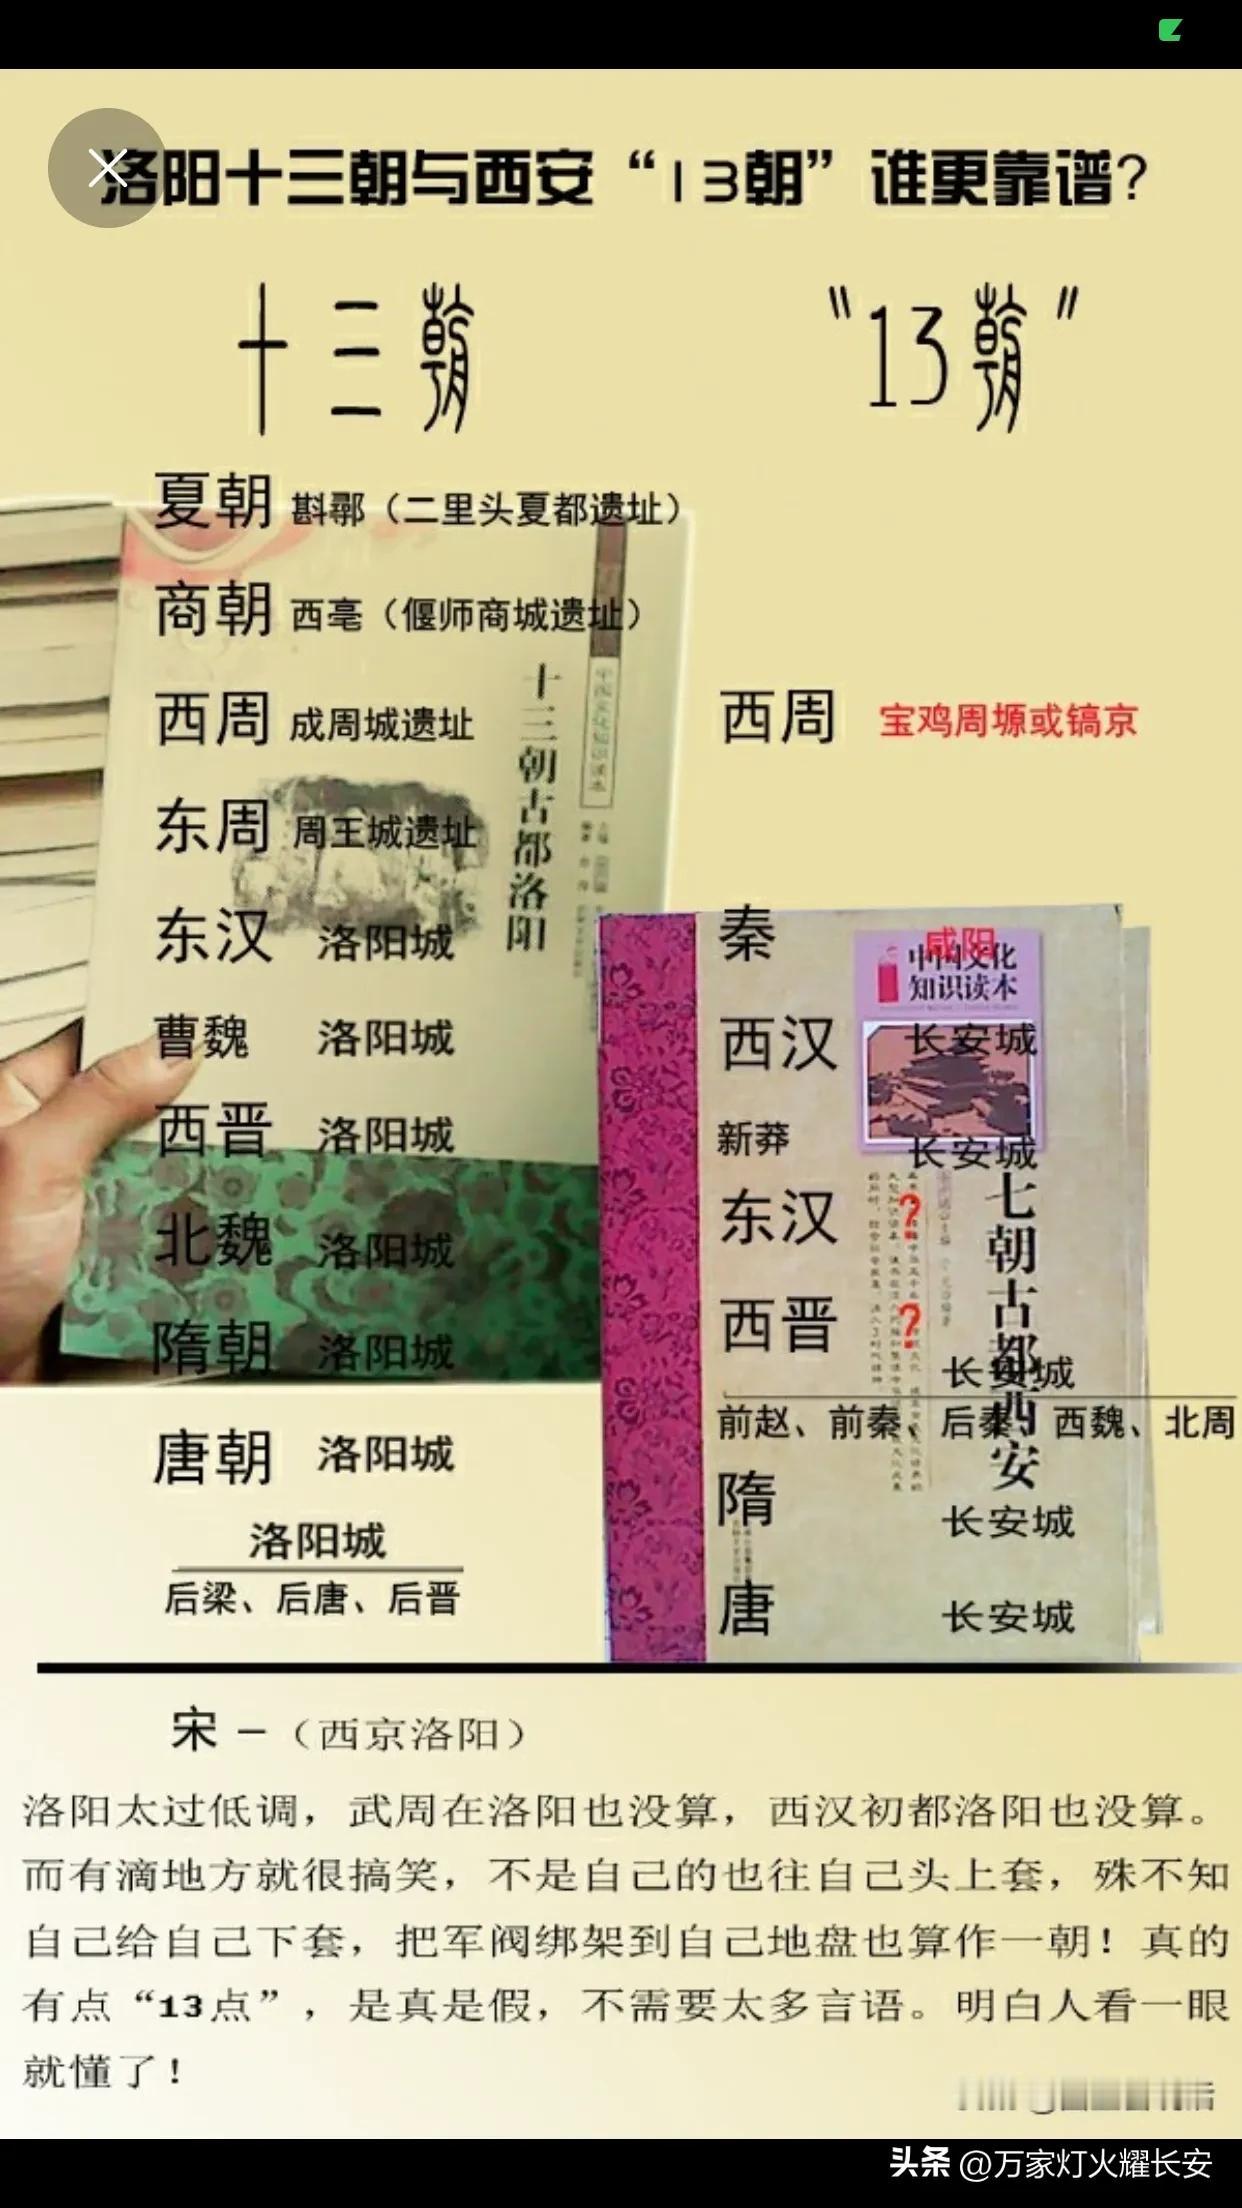 洛阳十三朝与西安“13朝”谁更靠谱？
十三朝
“13朝”
夏朝 斟鄩（二里头夏都遗址）
商朝 西亳（偃师商城遗址）
西周 成周城遗址
东周 周王城遗址
东汉 洛阳城
曹魏 洛阳城
西晋 洛阳城
北魏 洛阳城
隋朝 洛阳城
唐朝 洛阳城
洛阳城
后梁、后唐、后晋
十三朝古都洛阳
中国文化知识读本
西周 宝鸡周塬或镐京
秦 咸阳
西汉 长安城
新莽 长安城
东汉 ?
西晋 ?
长安城
前赵、前秦、后秦、西魏、北周
隋 长安城
唐 长安城
中国文化
知识读本
七朝古都西安
宋－（西京洛阳）
洛阳太过低调，武周在洛阳也没算，西汉初都洛阳也没算。
而有滴地方就很搞笑，不是自己的也往自己头上套，殊不知
自己给自己下套，把军阀绑架到自己地盘也算作一朝！真的
有点“13点”，是真是假，不需要太多言语。明白人看一眼
就懂了！
头条 @万家灯火耀长安